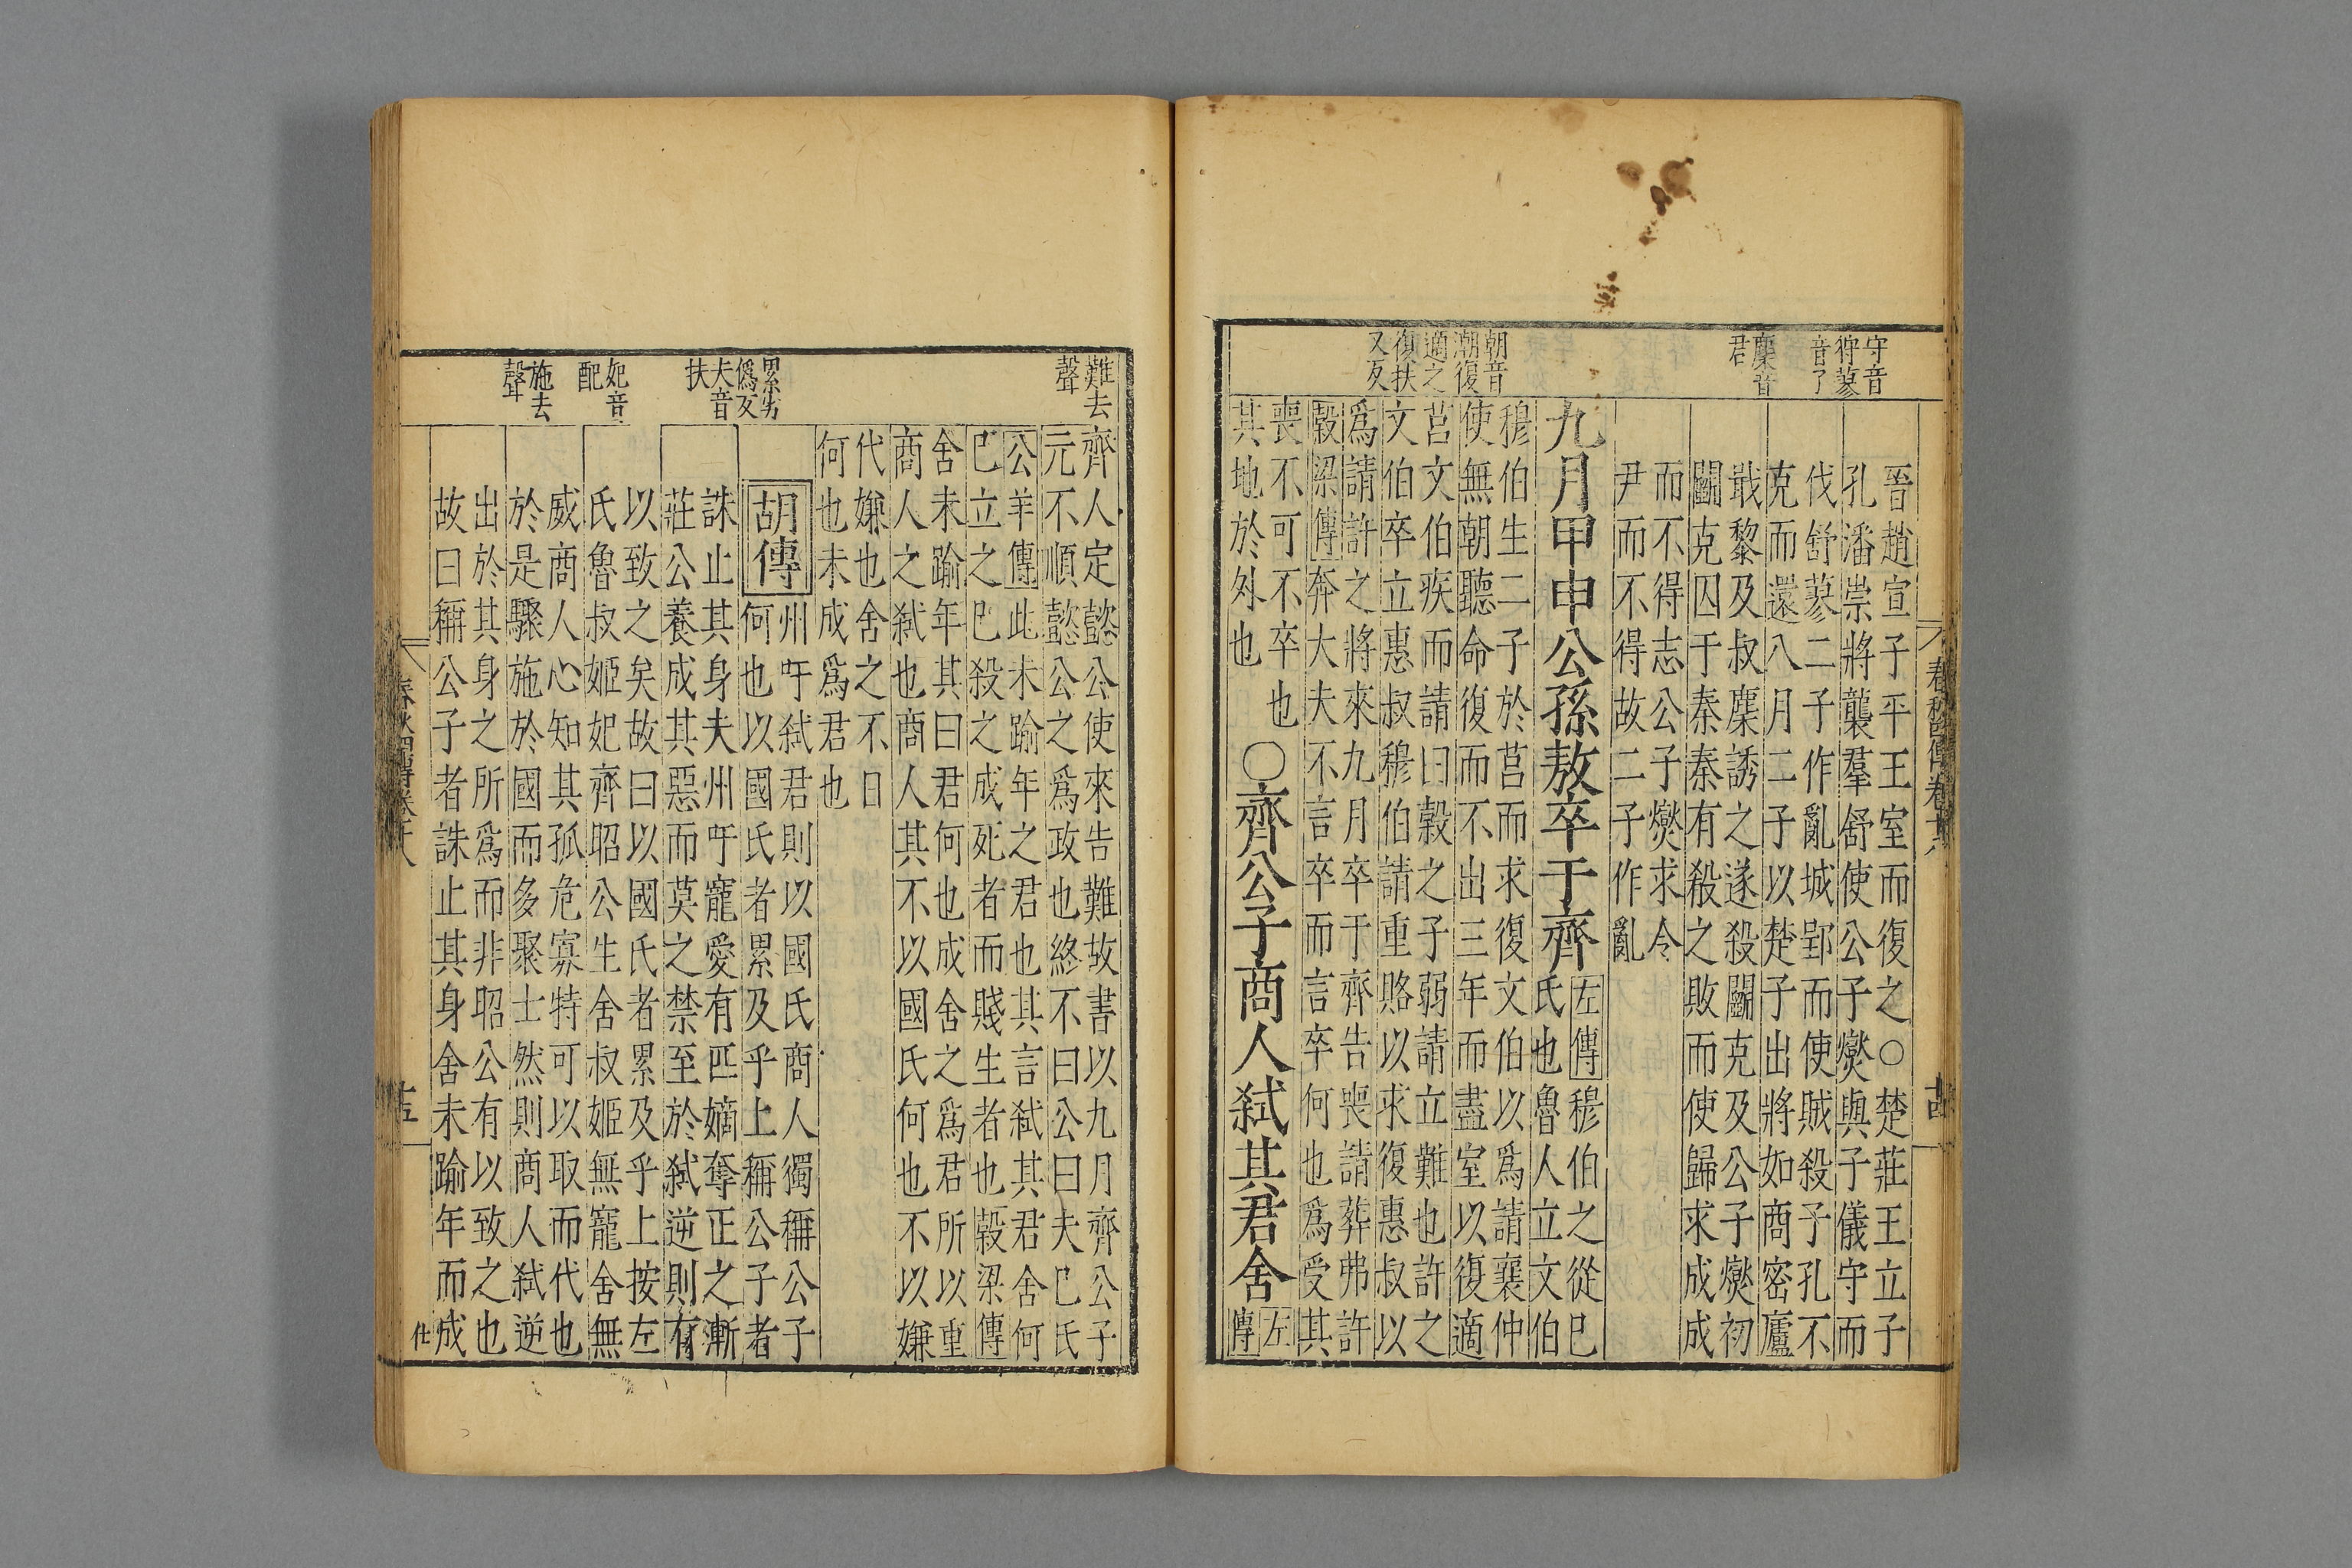 守音
狩蓼
音了
麇音
君
朝音
潮復
適之
復扶
又反
晉趙宣子平王室而復之○楚莊王立子
孔潘崇將襲羣舒使公子燮與子儀守而
伐舒蓼二子作亂城郢而使賊殺子孔不
克而還八月二子以楚子出將如商密廬
戢黎及叔麇誘之遂殺鬭克及公子燮初
鬭克囚于秦秦有殽之敗而使歸求成成
而不得志公子燮求令
尹而不得故二子作亂
九月甲申公孫敖卒于齊
左傳穆伯之從巳
氏也魯人立文伯
穆伯生二子於莒而求復文伯以爲請襄仲
使無朝聽命復而不出三年而盡室以復適
莒文伯疾而請曰穀之子弱請立難也許之
文伯卒立惠叔穆伯請重賂以求復惠叔以
爲請許之將來九月卒于齊告喪請葬弗許
穀梁傳奔大夫不言卒而言卒何也爲受其
喪不可不卒也
其地於外也
○齊公子商人弒其君舍
左
傳
春秋四傳卷十八
十四
難去
聲
累劣
僞反
夫音
扶
妃音
配
施去
聲
齊人定懿公使來告難故書以九月齊公子
元不順懿公之爲政也終不曰公曰夫巳氏
公羊傳此未踰年之君也其言弒其君舍何
巳立之巳殺之成死者而賤生者也穀梁傳
舍未踰年其曰君何也成舍之爲君所以重
商人之弒也商人其不以國氏何也不以嫌
代嫌也舍之不日
何也未成爲君也
胡傳
州吁弒君則以國氏商人獨稱公子
何也以國氏者累及乎上稱公子者
誅止其身夫州吁寵愛有匹嫡奪正之漸
莊公養成其惡而莫之禁至於弒逆則有
以致之矣故曰以國氏者累及乎上按左
氏魯叔姬妃齊昭公生舍叔姬無寵舍無
威商人心知其孤危寡特可以取而代也
於是驟施於國而多聚士然則商人弒逆
出於其身之所爲而非昭公有以致之也
故曰稱公子者誅止其身舍未踰年而成
春秋四傳卷十八
十五
仕